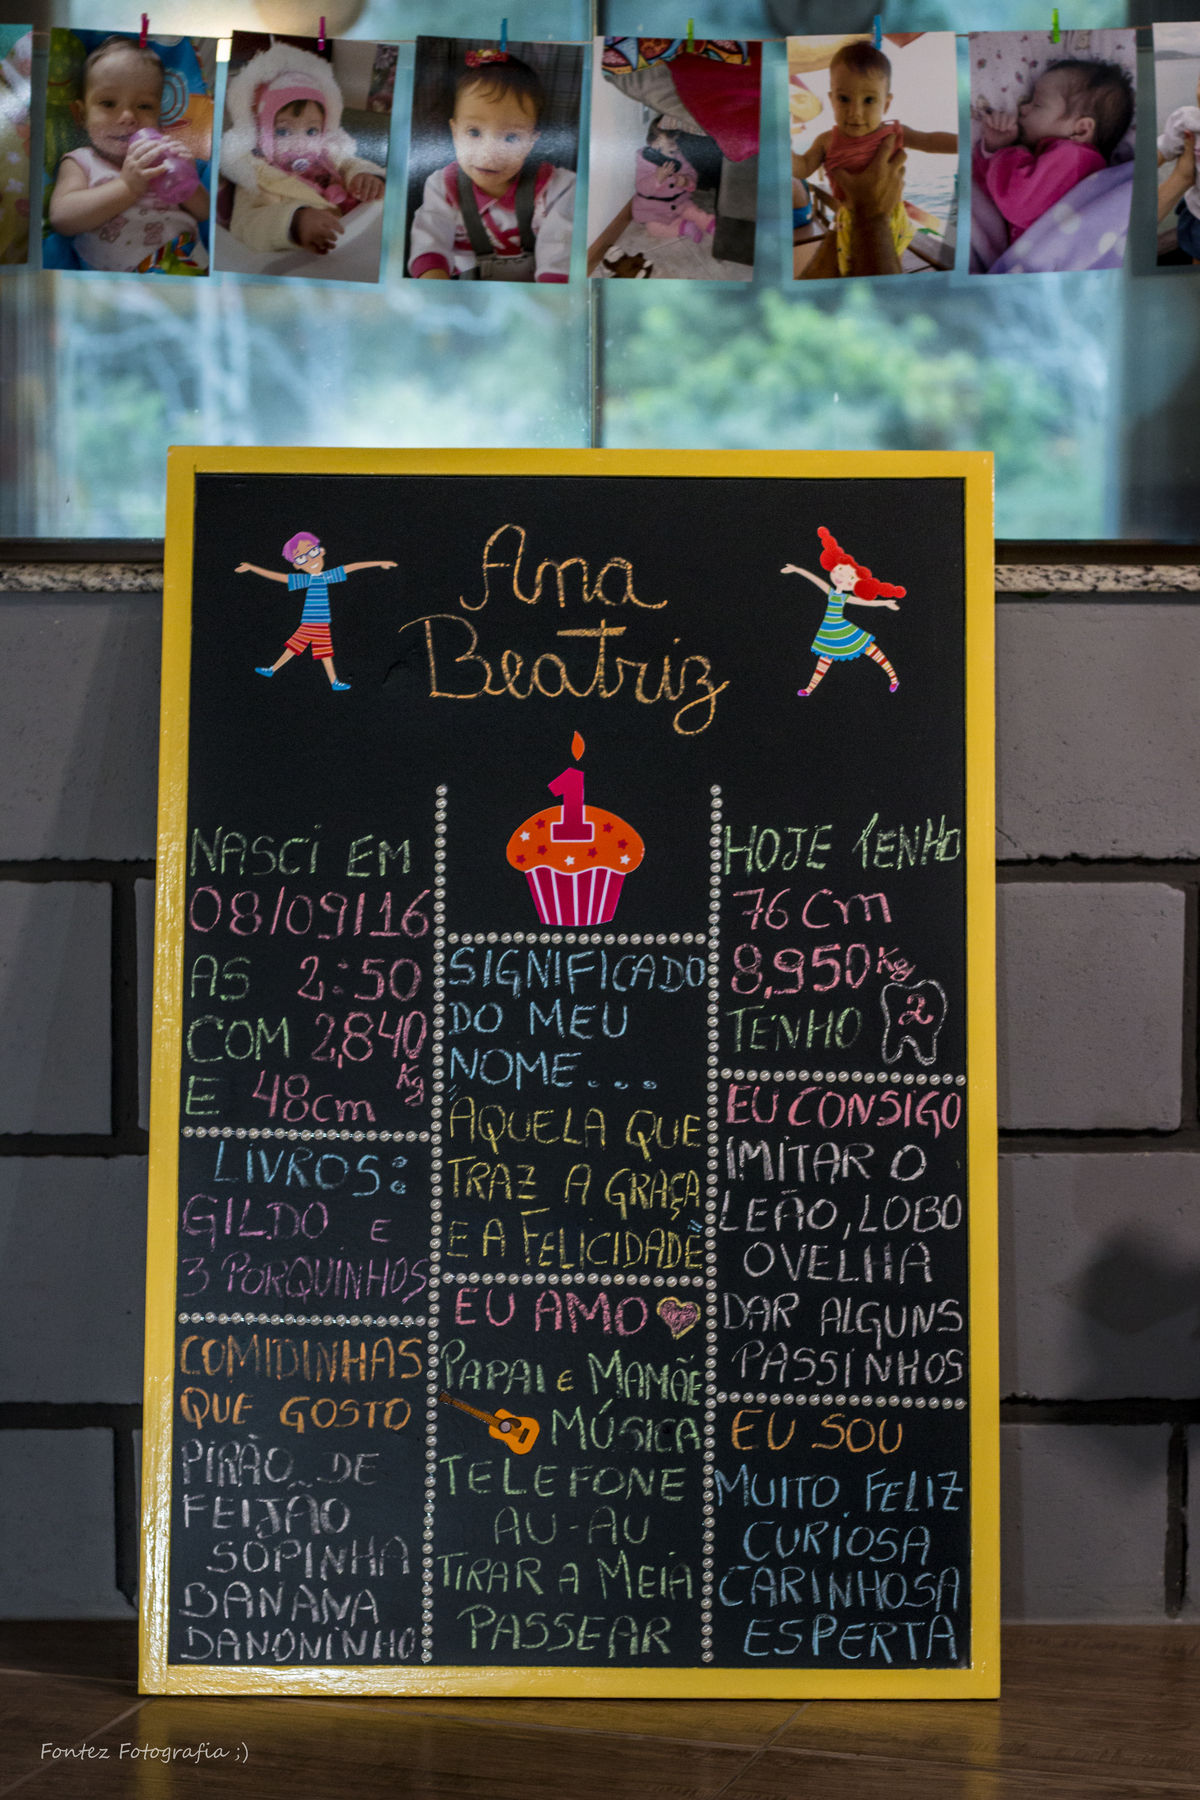 Ana
Beatriz
1
NASCI EM
08/09/16
AS 2:50
COM 2,840
Kg
E 48cm
LIVROS:
GILDO E
3 PORQUINHOS
COMIDINHAS
QUE GOSTO
PIRÃO DE
FEIJÃO
SOPINHA
BANANA
DANONINHO
SIGNIFICADO
DO MEU
NOME...
"AQUELA QUE
TRAZ A GRAÇA
E A FELICIDADE"
EU AMO
PAPAI E MAMÃE
MÚSICA
TELEFONE
AU-AU
TIRAR A MEIA
PASSEAR
HOJE TENHO
76cm
8,950Kg
TENHO 2
EU CONSIGO
IMITAR O
LEÃO, LOBO
OVELHA
DAR ALGUNS
PASSINHOS
EU SOU
MUITO FELIZ
CURIOSA
CARINHOSA
ESPERTA
Fontez Fotografia ;)